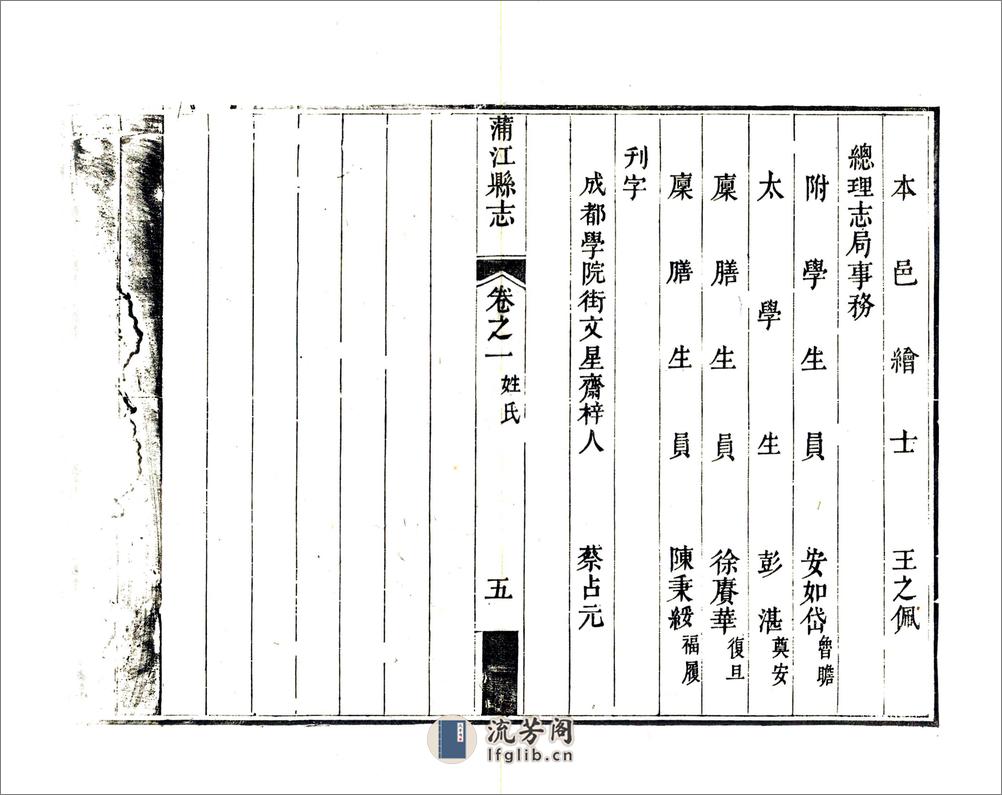 本邑繪士 王之佩
總理志局事務
附學生員 安如岱 魯瞻
太學生 彭湛 奠安
廩膳生員 徐賡華 復旦
廩膳生員 陳秉綏 福履
刋字
成都學院街文星齋梓人 蔡占元
蒲江縣志 卷之一 姓氏 五
流芳阁
lfglib.cn